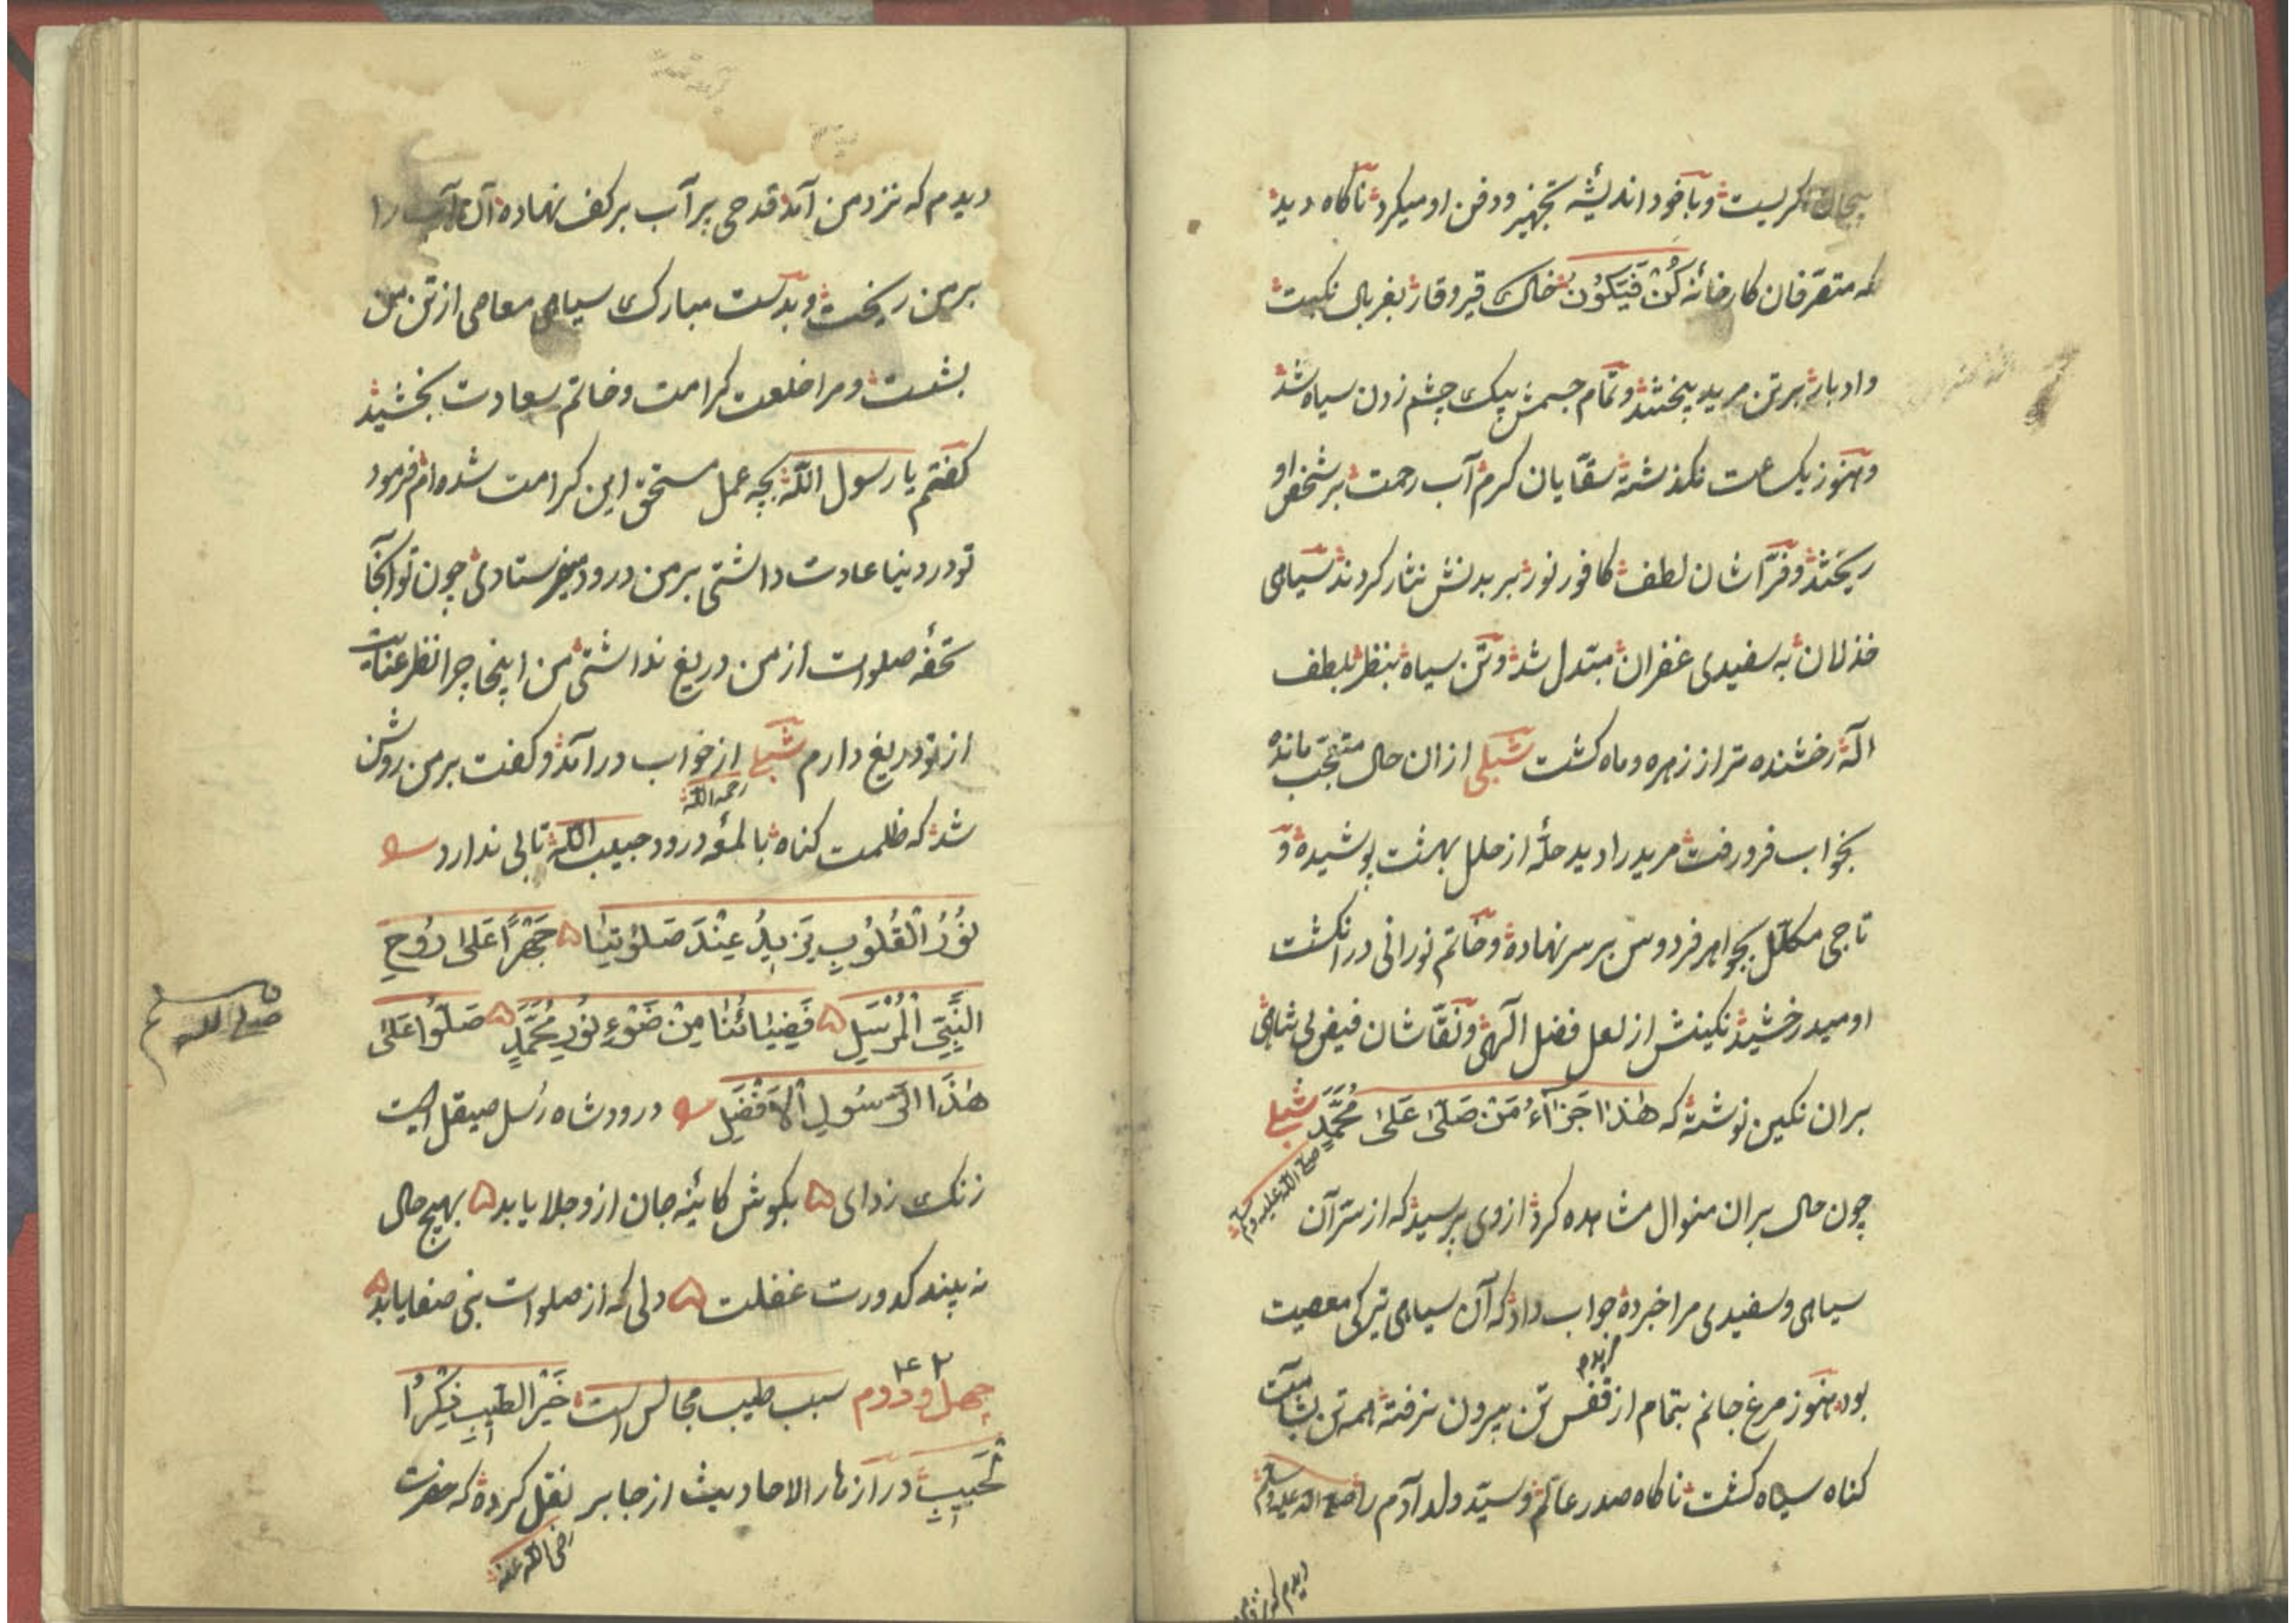 بیجان نکریست وبا خود اندیشه تجهیز ودفن او میکرد ناکاه دید
که متصرفان کارخانه کُنْ فَیَکُوْنُ خاک قیر وقار بغربال نکبت
وادبار بر تن مرید بیختند وتمام جسمش بیک چشم زدن سیاه شد
وهنوز یکساعت نکذشته سقایان کرم آب رحمت بر شخص او
ریختند وفراشان لطف کافور نور بر بدنش نثار کردند سیاهی
خذلان به سفیدی غفران مبتدل شد وتن سیاه بنظر بلطف
اله رخشنده تر از زهره وماه کشت شبلی ازان حال متعجب مانده
بخواب فرو رفت مرید را دید حلهٔ از حلل بهشت پوشیده و
تاجی مکلل بجواهر فردوس بر سر نهاده وخاتم نورانی در انکشت
او میدرخشید نکینش از لعل فضل الهی ونقاشان فیض بی تناهی
بران نکین نوشته که هٰذَا جَزَآءُ مَنْ صَلّٰی عَلٰی مُحَمَّدٍ شبلی
صلی الله علیه وسلم
چون حال بران منوال مشاهده کرد از وی پرسید که از سر آن
سیاهی وسفیدی مرا خبر ده جواب داد که آن سیاهی تیرکی معصیت
بود هنوز مرغ جانم بتمام از قفس تن بیرون نرفته همه تن بشآمت
کناه سیاه کشت ناکاه صدر عالم وسید ولد آدم را صلی الله علیه وسلم
دیدم که نزد من
دیدم که نزد من آمد قدحی پر آب بر کف نهاده آن آب را
بر من ریخت وبدست مبارک سیاهی معاصی از تن من
بشست ومرا خلعت کرامت وخاتم سعادت بخشید
کفتم یا رسول الله بچه عمل مستحق این کرامت شده ام فرمود
تو در دنیا عادت داشتی بر من درود میفرستادی چون تو آنجا
تحفهٔ صلوات از من دریغ نداشتی من اینجا چرا نظر عنایت
از تو دریغ دارم شبلی از خواب در آمد وکفت بر من روشن
رحمه الله
شد که ظلمت کناه با لمعهٔ درود حبیب الله تابی ندارد
نُوْرُ الْقُلُوْبِ یَزِیْدُ عِنْدَ صَلٰوتِنَا ۵ جَهْرًا عَلٰی رُوْحِ
النَّبِیِّ الْمُرْسَلِ ۵ فَضِیَائُنَا مِنْ ضَوْءِ نُوْرِ مُحَمَّدٍ ۵ صَلُّوْا عَلٰی
صلی الله وسلم
هٰذَا الرَّسُوْلِ الْاَفْضَلِ درود شاه رسل صیقلی است
زنک زدای ۵ بکوش کائینه جان ازو جلا یابد ۵ بهیچ حال
نه بیند کدورت غفلت ۵ دلی که از صلوات نبی صفا یابد ۵
۴۲
چهل ودوم سبب طیب مجالس است خَیْرُ الطِّیْبِ ذِکْرُ
الْحَبِیْبِ در ازهار الاحادیث از جابر نقل کرده که حضرت
رضی الله عنه